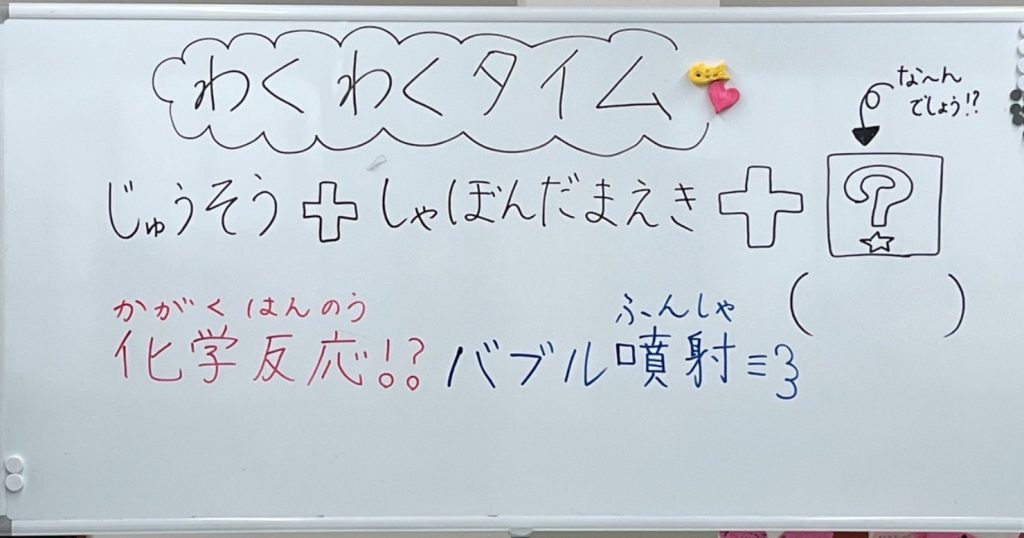 わくわくタイム
な〜んでしょう!?
じゅうそう＋しゃぼんだまえき＋?
(　　　)
かがくはんのう
化学反応!?
ふんしゃ
バブル噴射≡3